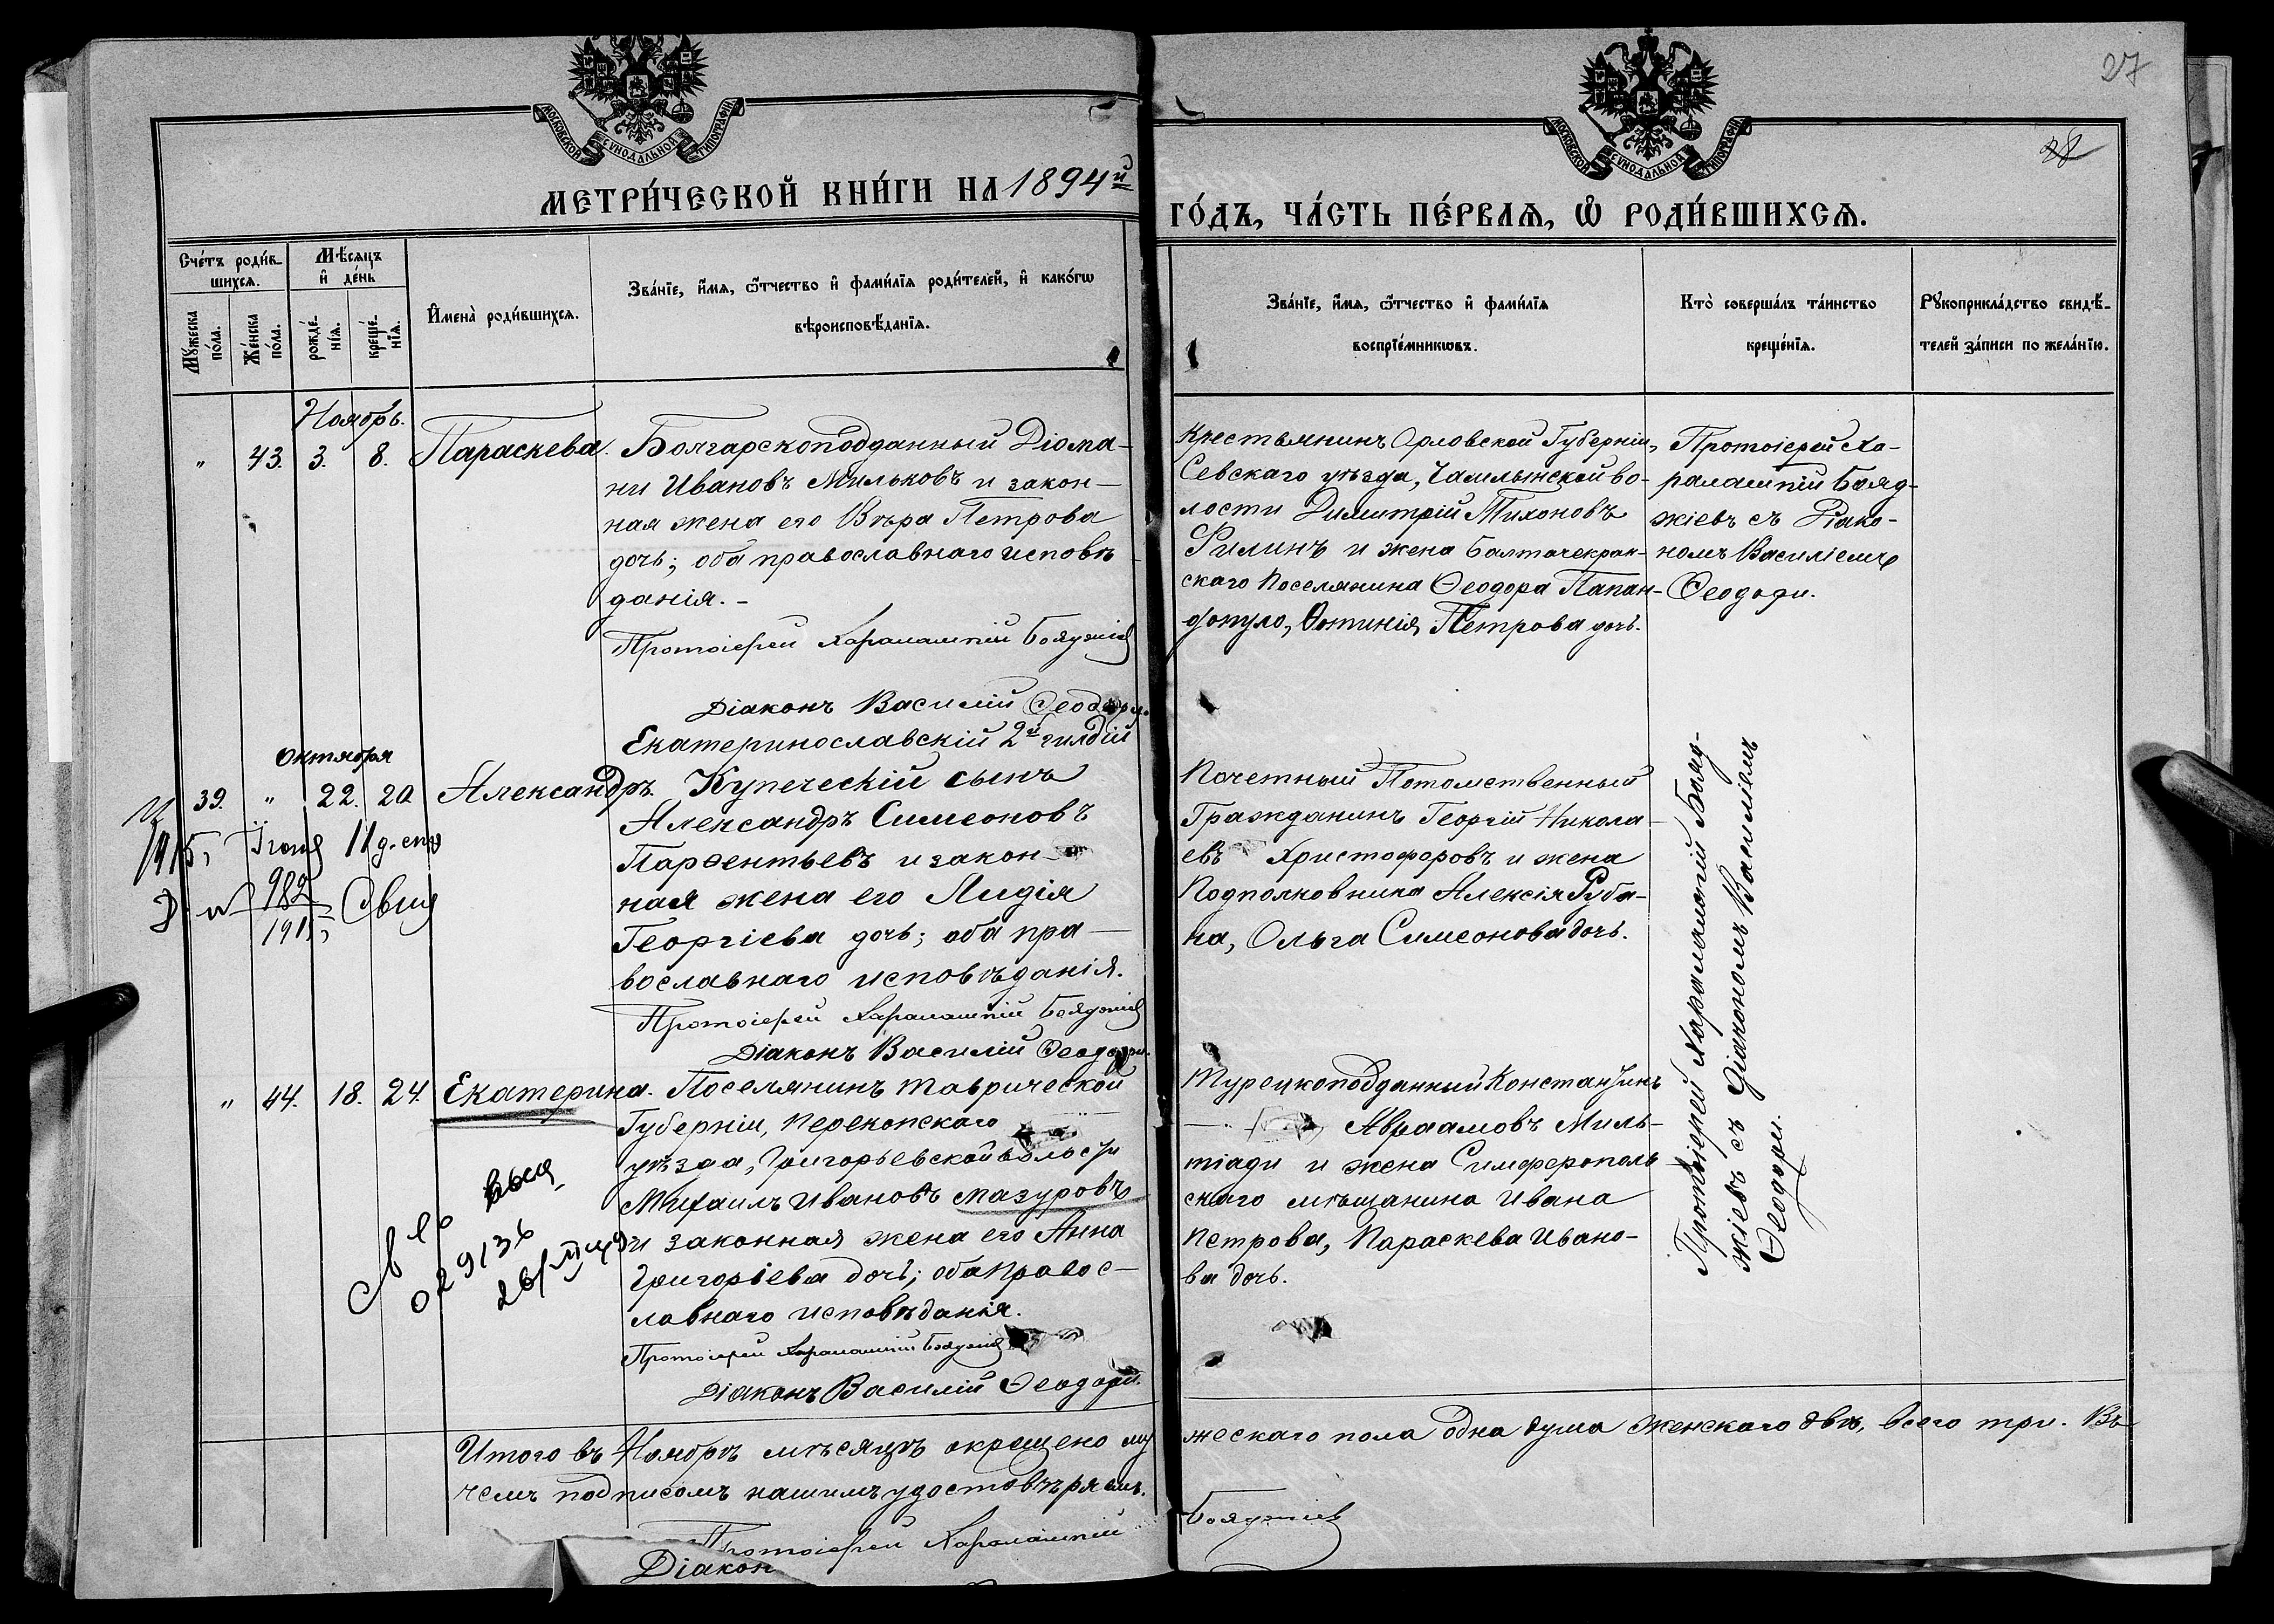 27
28
МОСКОВСКОЙ СѴНОДАЛЬНОЙ ТИПОГРАФІИ
МОСКОВСКОЙ СѴНОДАЛЬНОЙ ТИПОГРАФІИ
МЕТРИ́ЧЕСКОЙ КНИ́ГИ НА 1894й
ГО́ДЪ, ЧА́СТЬ ПЕ́РВАѦ, Ѡ РОДИ́ВШИХСѦ.
Сче́тъ роди́в-
шихсѧ.
Мꙋ́жеска по́ла.
Же́нска по́ла.
Мѣ́сѧцъ
и҆ де́нь
рожде́-
нїѧ.
креще́-
нїѧ.
И҆мена̀ роди́вшихсѧ.
Зва́нїе, и҆́мѧ, ѻ҆́тчество и҆ фами́лїѧ роди́телей, и҆ како́гѡ
вѣроисповѣ́данїѧ.
Зва́нїе, и҆́мѧ, ѻ҆́тчество и҆ фами́лїѧ
воспрїе́мникѡвъ.
Кто̀ соверша́лъ та́инство
креще́нїѧ.
Рꙋкоприкла́дство свидѣ́-
телей за́писи по жела́нїю.
Ноябрь.
" 43. 3. 8. Параскева.
Болгарскоподданный Діома-
ни Ивановъ Мильковъ и закон-
ная жена его Вѣра Петрова
дочь; оба православнаго исповѣ-
данія.-
Протоіерей Харалампій Бояджіев
Діаконъ Василій Ѳеодори.
Крестьянинъ Орловской Губерніи,
Севскаго уѣзда, во-
лости Димитрій Тихоновъ
Филинъ и жена Балтачекрак-
скаго Поселянина Ѳеодора Папан-
допуло, Фотинія Петрова дочь.
Протоіерей Ха-
ралампій Бояд-
жіевъ съ Діако-
номъ Василіемъ
Ѳеодори.
Октября
39. " 22. 20 Александръ.
Екатеринославскій 2й гилдіи
Купеческій сынъ
Александръ Симеоновъ
Парѳентьевъ и закон-
ная жена его Лидія
Георгіева дочь; оба пра-
вославнаго исповѣданія.
Протоіерей Харалампій Бояджіев
Діаконъ Василій Ѳеодори.
1915, Іюня 11 д.
№ 982
1915
Почетный Потомственный
Гражданинъ Георгій Никола-
евъ Христофоровъ и жена
Подполковника Алексія Руба-
на, Ольга Симеонова дочь.
Протоіерей Харалампій Бояд-
жіевъ съ Діакономъ Василіемъ
Ѳеодори.
" 44. 18. 24. Екатерина.
Поселянинъ Таврической
Губерніи, Перекопскаго
уѣзда, Григорьевской волости
Михаилъ Ивановъ Мазуровъ
и законная жена его Анна
Григоріева дочь; оба правос-
лавнаго исповѣданія.
Протоіерей Харалампій Бояджіев
Діаконъ Василій Ѳеодори.
Св во выд
029136
Турецкоподданный Константинъ
Авраамовъ Миль-
тіади и жена Симферополь
скаго мѣщанина Ивана
Петрова, Параскева Ивано-
ва дочь.
Итого въ Ноябрѣ мѣсяцѣ окрещено му
жескаго пола одна душа женскаго двѣ, всего три. Въ
чемъ подписомъ нашимъ удостовѣряемъ.
Протоіерей Харалампій
Бояджіев
Діакон